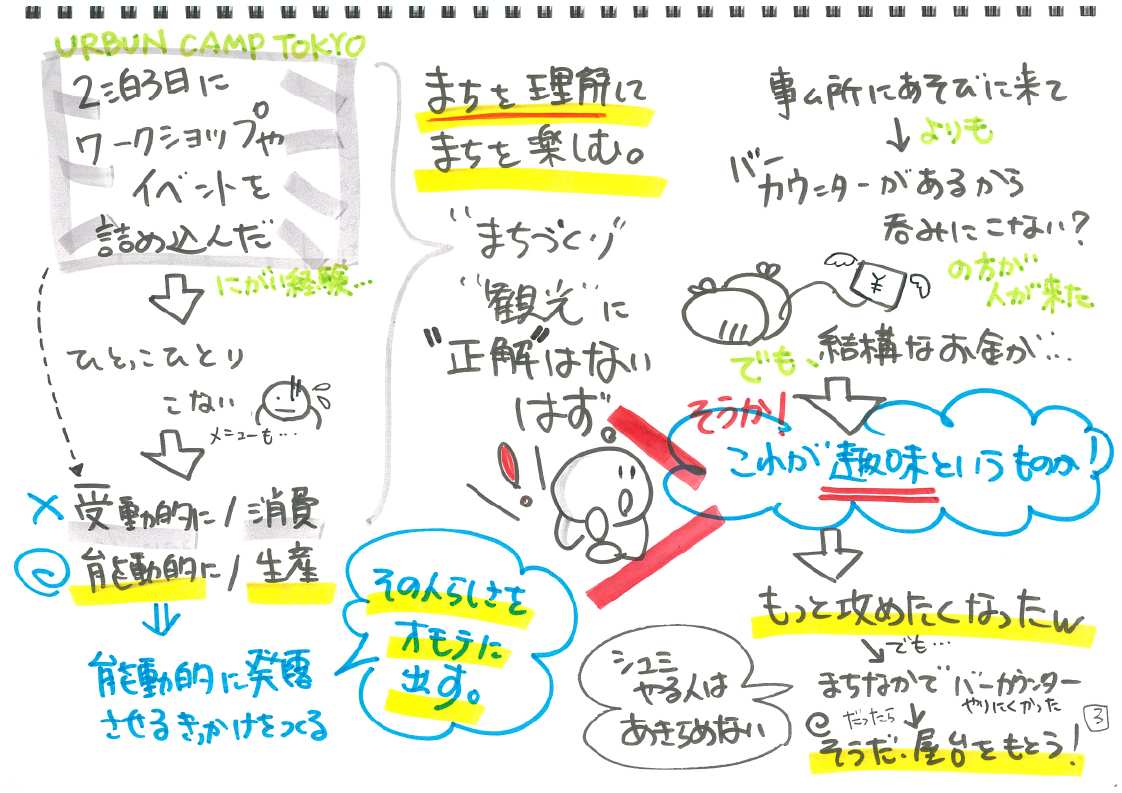 URBUN CAMP TOKYO
2泊3日に
ワークショップや
イベントを
詰め込んだ
にがい経験…
ひとっこひとり
こない
メニューも…
× 受動的に / 消費
能動的に / 生産
能動的に発露
させるきっかけをつくる
その人らしさを
オモテに
出す。
まちを理解して
まちを楽しむ。
"まちづくり"
"観光"に
"正解"はない
はず
事ム所にあそびに来て
よりも
バー
カウンターがあるから
呑みにこない?
の方が
人が来た
¥
でも、結構なお金が…
そうか!
これが趣味というものか!
もっと攻めたくなったw
でも…
まちなかでバーカウンター
やりにくかった
だったら
そうだ、屋台をもとう!
シュミ
やる人は
あきらめない
3